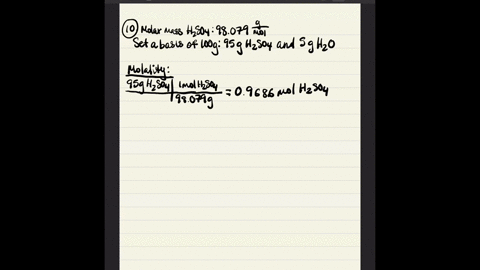 10 Molar Mass H₂SO₄: 98.079 g/mol
Set a basis of 100g: 95g H₂SO₄ and 5g H₂O
Molality:
95g H₂SO₄ | 1 mol H₂SO₄ = 0.9686 mol H₂SO₄
98.079g